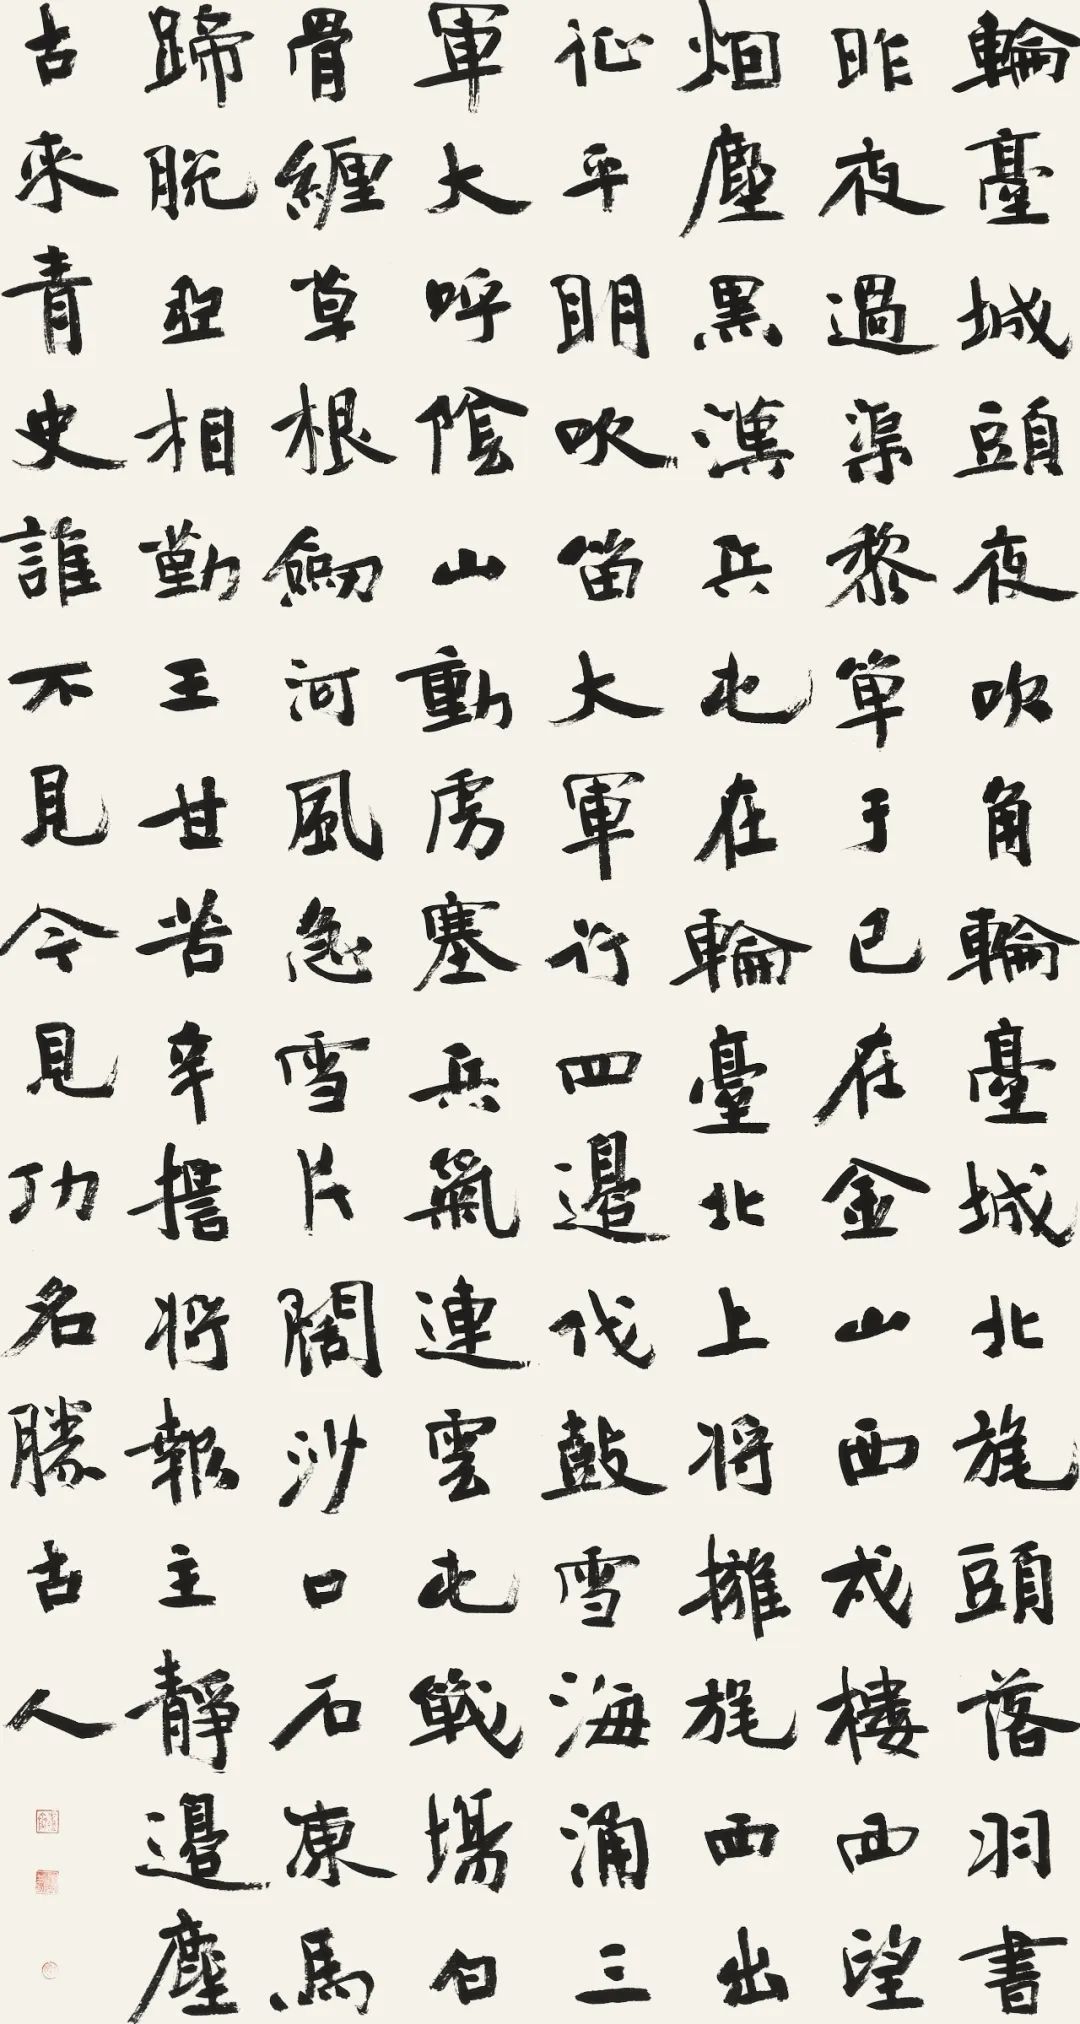 輪臺城頭夜吹角輪臺城北旄頭落羽書
昨夜過渠黎單于已在金山西戍樓西望
烟塵黑漢兵屯在輪臺北上將擁旄西出
征平明吹笛大軍行四邊伐鼓雪海涌三
軍大呼陰山動虜塞兵氣連雲屯戰場白
骨纏草根劍河風急雪片闊沙口石凍馬
蹄脫亞相勤王甘苦辛誓將報主靜邊塵
古來青史誰不見今見功名勝古人